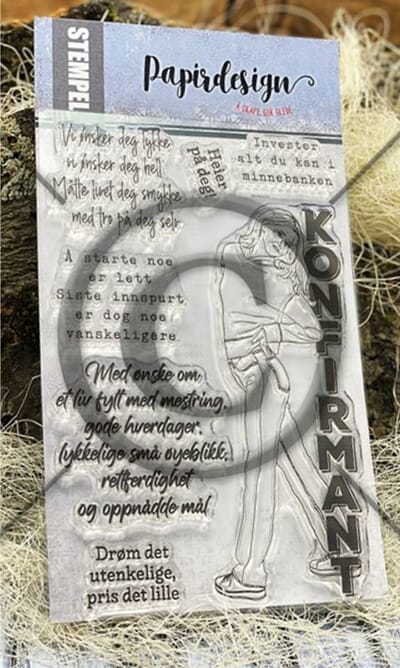 STEMPEL
Papirdesign
Å SKAPE GIR GLEDE
Vi ønsker deg lykke,
vi ønsker deg hell.
Måtte livet deg smykke
med tro på deg selv
Heier
på deg!
Invester
alt du kan i
minnebanken
Å starte noe
er lett
Siste innspurt
er dog noe
vanskeligere
Med ønske om
et liv fylt med mestring,
gode hverdager,
lykkelige små øyeblikk,
rettferdighet
og oppnådde mål
Drøm det
utenkelige,
pris det lille
KONFIRMANT